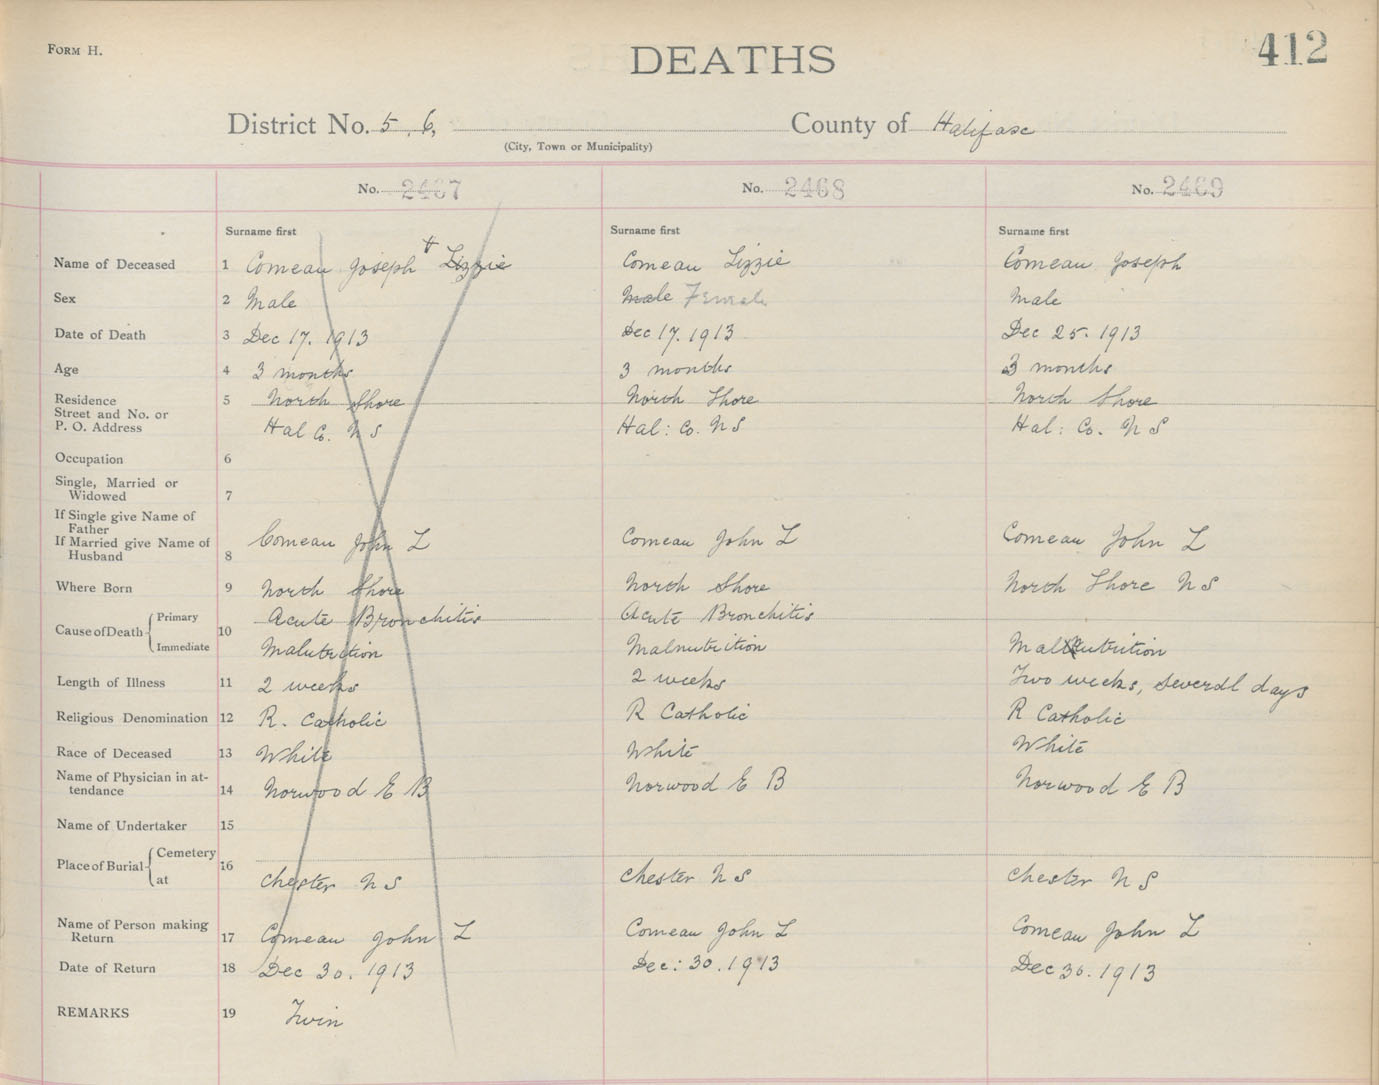 FORM H.
DEATHS
412
District No. 5, 6, County of Halifax
(City, Town or Municipality)
No. 2467 No. 2468 No. 2469
Surname first Surname first Surname first
Name of Deceased 1 Comeau Joseph + Lizzie Comeau Lizzie Comeau Joseph
Sex 2 Male Male Female Male
Date of Death 3 Dec 17. 1913 Dec 17. 1913 Dec 25. 1913
Age 4 3 months 3 months 3 months
Residence 5 North Shore North Shore North Shore
Street and No. or
P. O. Address Hal Co. N S Hal: Co. N S Hal: Co. N S
Occupation 6
Single, Married or
Widowed 7
If Single give Name of
Father
If Married give Name of
Husband 8 Comeau John L Comeau John L Comeau John L
Where Born 9 North Shore North Shore North Shore N S
Cause of Death 10 Primary Acute Bronchitis Acute Bronchitis
Immediate Malutrition Malnutrition Malnutrition
Length of Illness 11 2 weeks 2 weeks Two weeks, several days
Religious Denomination 12 R. Catholic R Catholic R Catholic
Race of Deceased 13 White White White
Name of Physician in at-
tendance 14 Norwood E B Norwood E B Norwood E B
Name of Undertaker 15
Place of Burial 16 Cemetery
at Chester N S Chester N S Chester N S
Name of Person making
Return 17 Comeau John L Comeau John L Comeau John L
Date of Return 18 Dec 30. 1913 Dec: 30. 1913 Dec 30. 1913
REMARKS 19 Twin